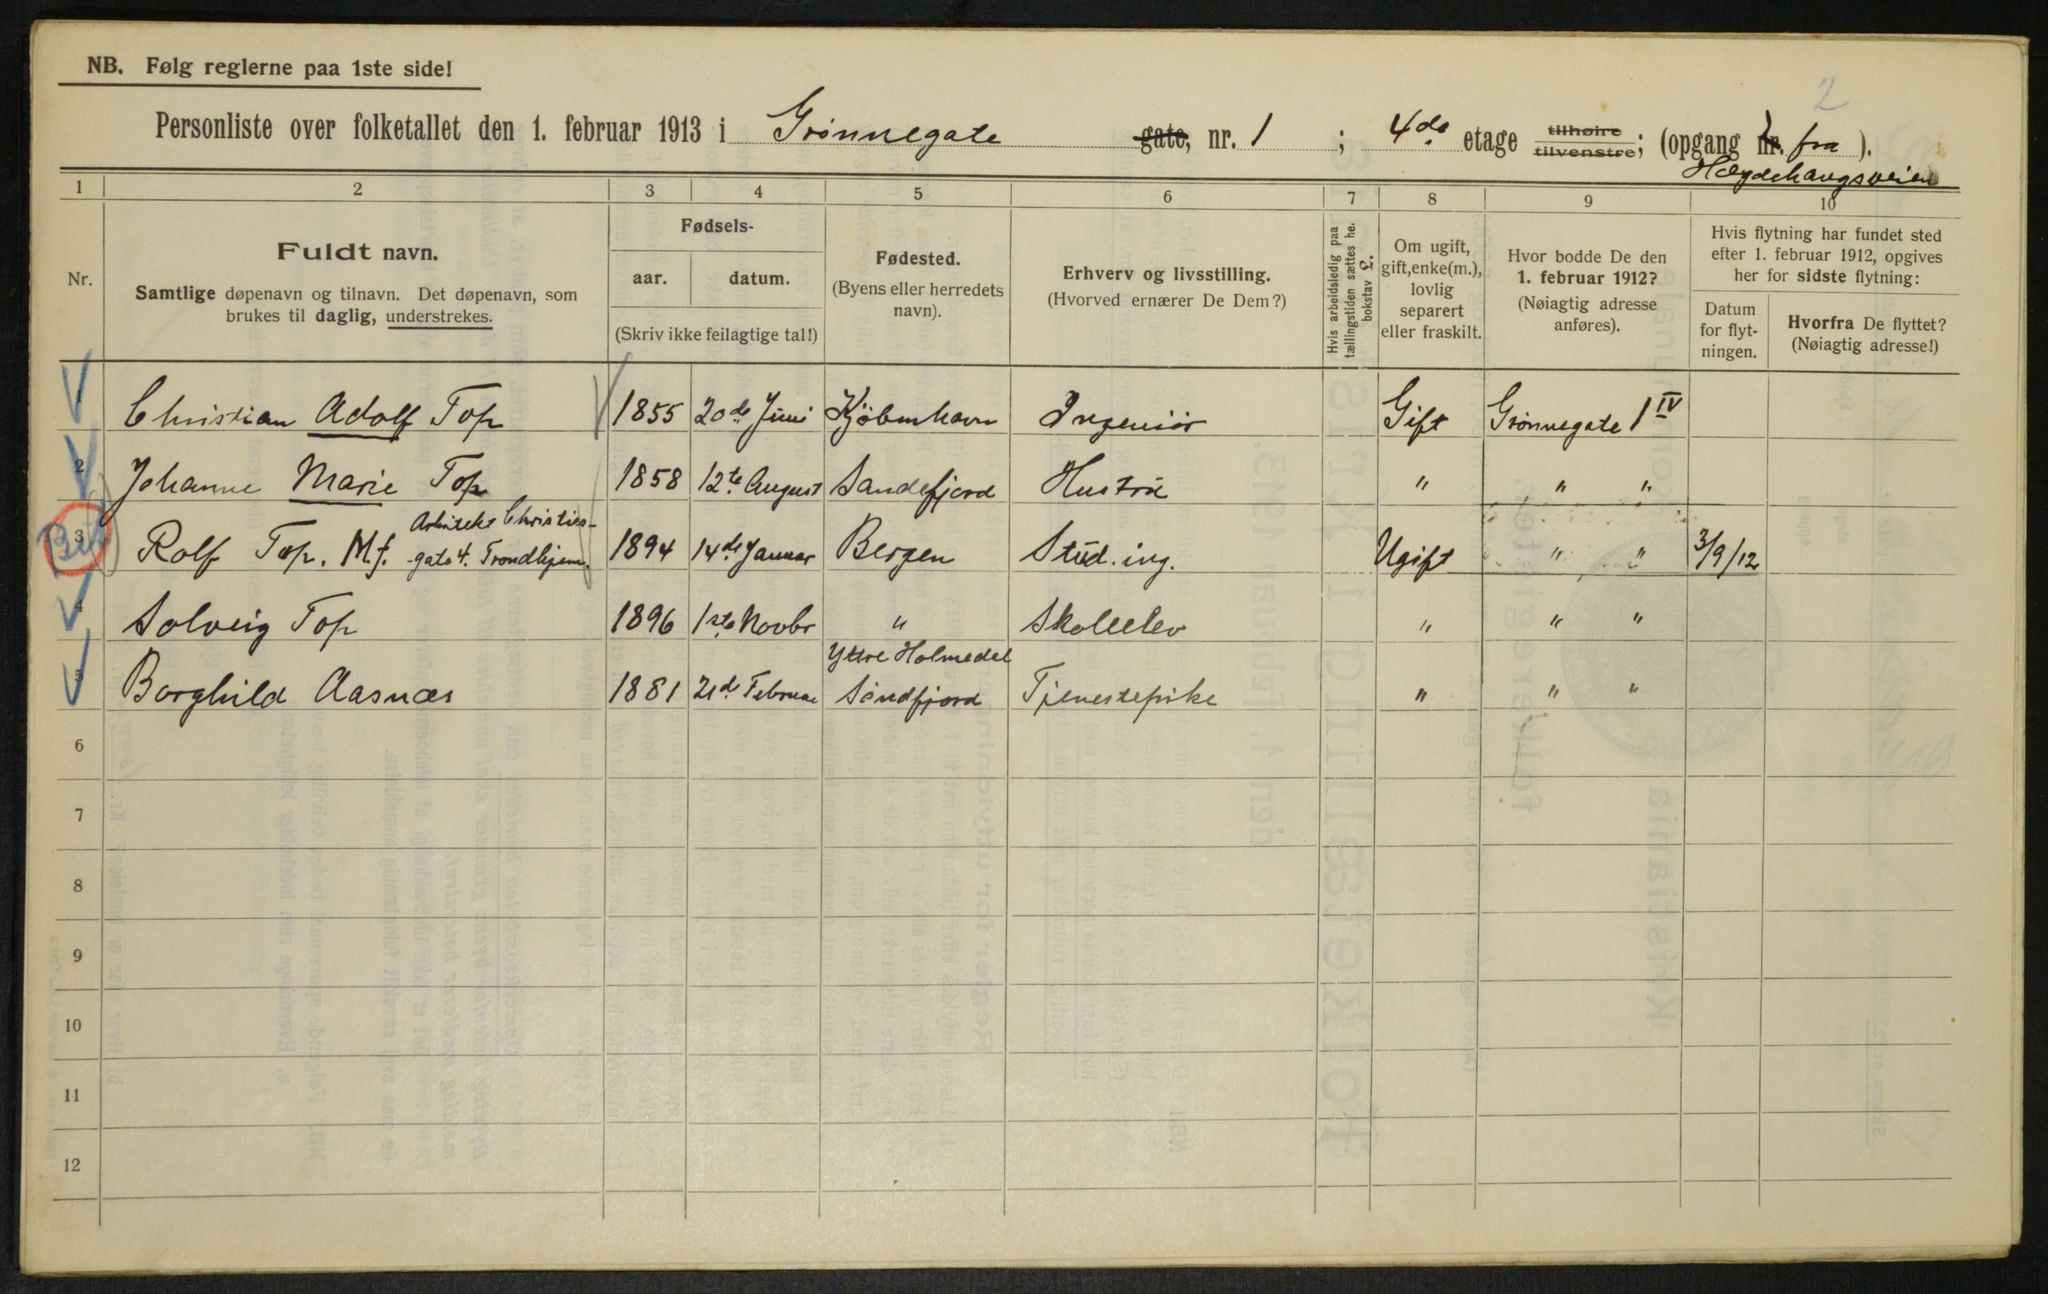 NB. Følg reglerne paa 1ste side!
2
Personliste over folketallet den 1. februar 1913 i Grønnegate gate, nr. 1 ; 4de etage tilhøire tilvenstre; (opgang nr. fra ).
Hægdehaugsveien
1 2 3 4 5 6 7 8 9 10
Nr.
Fuldt navn.
Samtlige døpenavn og tilnavn. Det døpenavn, som
brukes til daglig, understrekes.
Fødsels-
aar. datum.
(Skriv ikke feilagtige tal!)
Fødested.
(Byens eller herredets
navn).
Erhverv og livsstilling.
(Hvorved ernærer De Dem?)
Hvis arbeidsledig paa
tællingstiden sættes he.
bokstav L.
Om ugift,
gift, enke(m.),
lovlig
separert
eller fraskilt.
Hvor bodde De den
1. februar 1912?
(Nøiagtig adresse
anføres).
Hvis flytning har fundet sted
efter 1. februar 1912, opgives
her for sidste flytning:
Datum
for flyt-
ningen.
Hvorfra De flyttet?
(Nøiagtig adresse!)
1 Christian Adolf Top 1855 20de Juni Kjøbenhavn Ingeniør Gift Grønnegate 1 IV
2 Johanne Marie Top 1858 12te August Sandefjord Hustru " " "
3 Rolf Top. M.f. Arkitekt Christies-
gate 4. Trondhjem. 1894 14de Januar Bergen Stud. ing. Ugift " " 3/9/12
4 Solveig Top 1896 1ste Novbr " Skoleelev " " "
Yttre Holmedal
5 Borghild Aasnæs 1881 21de Februar Søndfjord Tjenestepike " " "
6
7
8
9
10
11
12